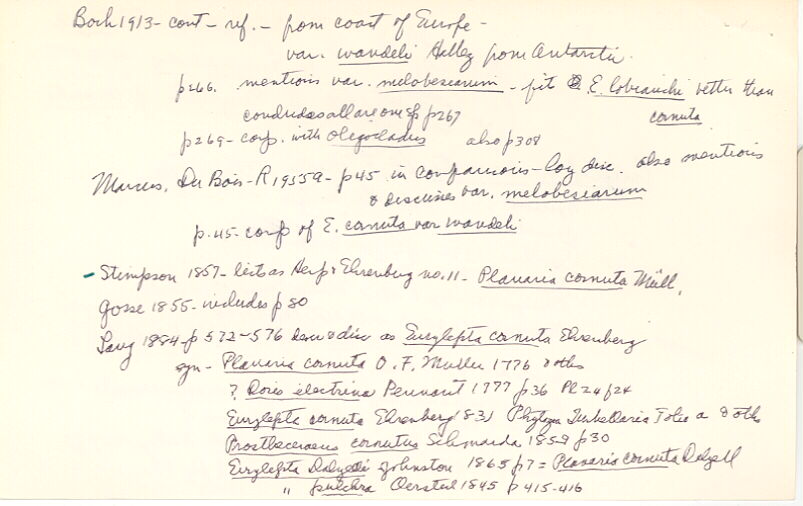 Bock 1913 - cont - ref. - from coast of Europe -
var. wandeli Hallez from Antarctic.
p266. mentions var. melobesiarum - fit E. lobianchi better than
cornuta
concludes all are one sp p267
p269 - comp. with Oligocladus also p308
Marcus, Du Bois-R 1955a - p45 in comparisons - log disc. also mentions
& discusses var. melobesiarum
p.45 - comp of E. cornuta var wandeli
- Stimpson 1857 - lists as Hemp & Ehrenberg no. 11 - Planaria cornuta Müll.
Gosse 1855 - includes p 80
Lang 1884 - p 572-576 desc & disc as Eurylepta cornuta Ehrenberg
syn - Planaria cornuta O. F. Muller 1776 & oths
? Doris electrina Pennant 1777 p36 Pl 24 f24
Eurylepta cornuta Ehrenberg 1831 Phytozoa Turbellaria Folio a & oths
Prostheceraeus cornutus Schmarda 1859 p30
Eurylepta Dalyelli Johnston 1865 p7 = Planaria cornuta Dalyell
" pulchra Oersted 1845 p 415-416